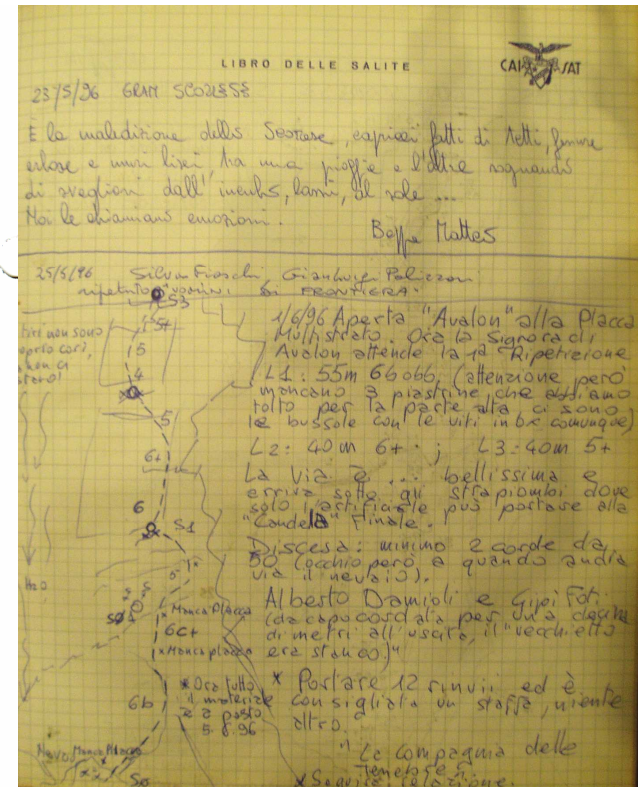 LIBRO DELLE SALITE
CAI SAT
23/5/96 GRAN SCORESS
È la maledizione dello Scorese, capricci fatti di tetti, fessure
erbose e muri lisci, tra una pioggia e l'altra sognando
di svegliarsi dall'incubo, al sole ...
Noi le chiamiamo emozioni.
Beppe
25/5/96 Silvio Gianluigi
ripetuto "UOMINI DI FRONTIERA"
S3
5+
5
4
5
6+
6
S1
H2O
Manca Placca
6c+
Manca placca
6b
* Ora tutto
il materiale
è a posto
5.8.96
Nevo Manca Placca
S0
1/6/96 Aperta "Avalon" alla Placca
Multistrato. Ora la Signora di
Avalon attende la 1ª Ripetizione
L1: 55m 6b obb. (attenzione però
mancano 3 piastrine che abbiamo
tolto per la parte alta ci sono
le bussole con le viti inbx comunque)
L2: 40m 6+ ; L3: 40m 5+
La Via è ... bellissima e
arriva sotto gli strapiombi dove
solo l'artificiale può portare alla
"Candela" Finale.
Discesa: minimo 2 corde da
50 (occhio però a quando andrà
via il nevaio).
Alberto Damioli e Gipi Foti
(da capocordata per una decina
di metri all'uscita, il "vecchietto
era stanco)"
* Portare 12 rinvii ed è
consigliata un staffa, niente
altro.
"La Compagnia delle
Tenebre"
* Seguirà relazione.